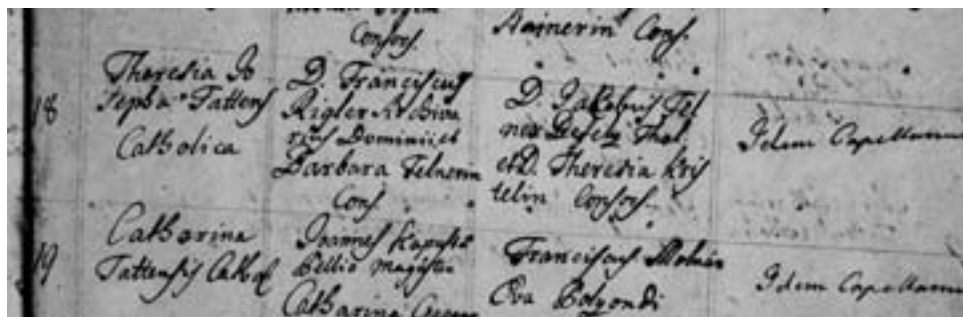 Consors.
Rainerin Cons.
18
Theresia Jo
sepha Tattens
Catholica
D. Franciscus
Rigler Archiva
rius Dominii et
Barbara Felnerin
Cons.
D. Jakobus Fel
ner
et D. Theresia Kris
telin Consors.
Idem Capellanus
19
Catharina
Tattensis Cathol
Joannes
Pellio Magister
Catharina
Franciscus Molnár
Eva
Idem Capellanus